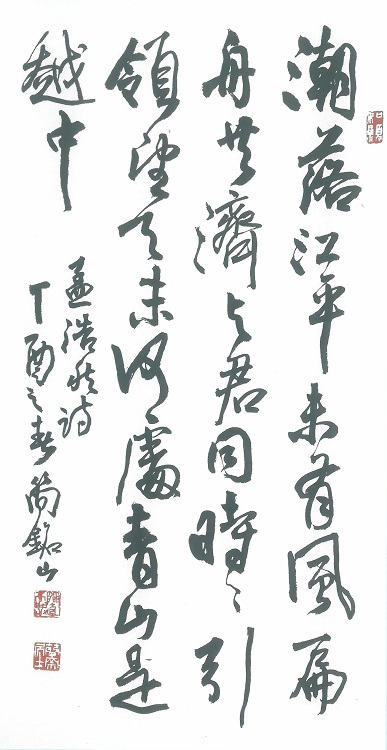 潮落江平未有風扁
舟共濟与君同時〻引
領望天末何處青山是
越中
孟浩然诗
丁酉之春銘山